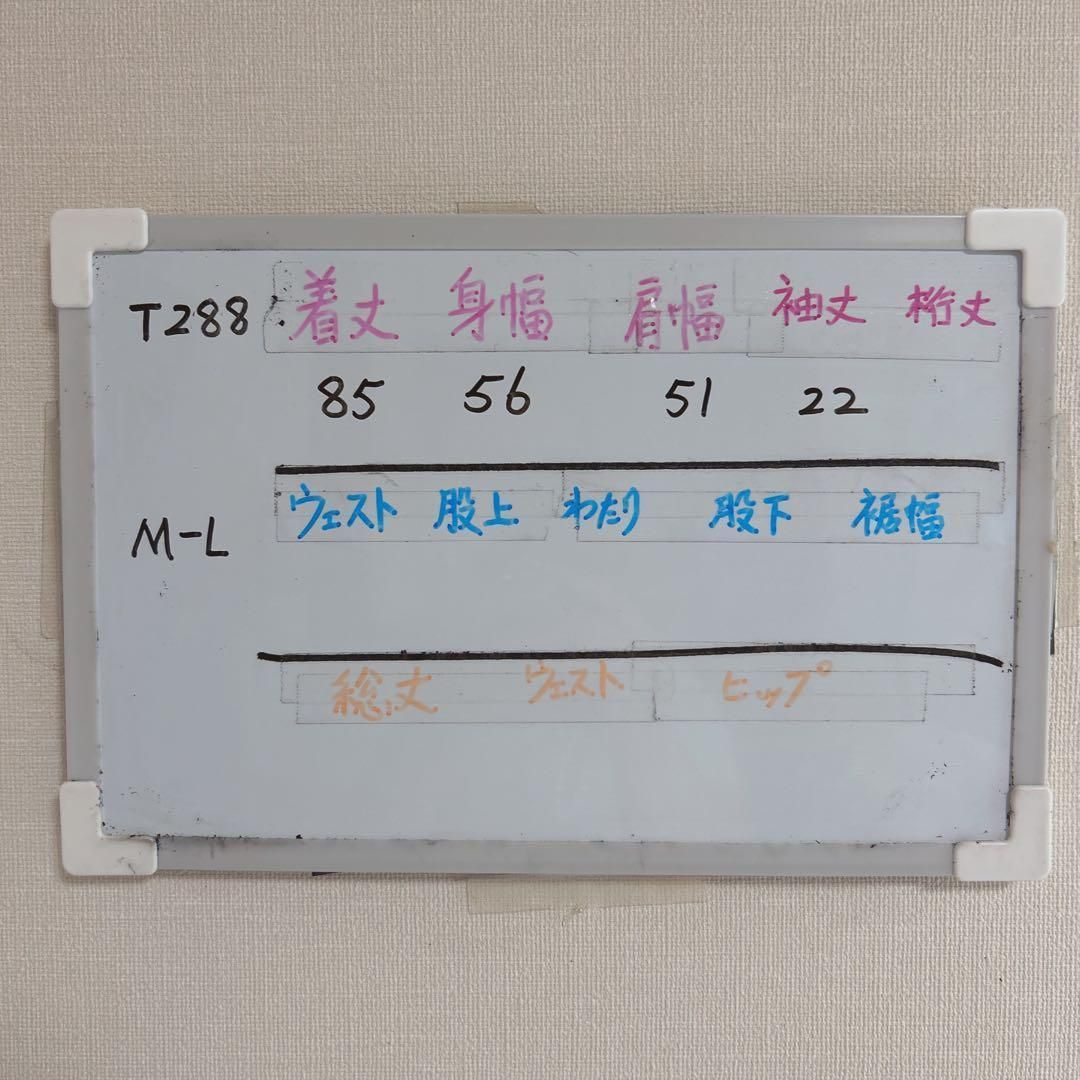 T288 着丈 身幅 肩幅 袖丈 裄丈
85 56 51 22
M-L ウェスト 股上 わたり 股下 裾幅
総丈 ウェスト ヒップ